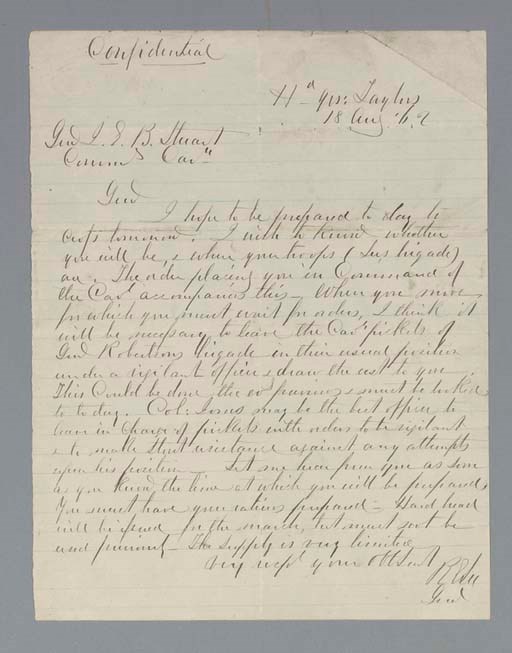 Confidential
Hd Qrs: Taylors
18 Aug '62
Genl J. E. B. Stuart
Commd Cavy
Genl
I hope to be prepared to day to
cross tomorrow. I wish to know whether
you will be, & where your troops ( brigade)
are. The order placing you in Command of
the Cavy accompanies this - When you move
for which you must wait for orders, I think it
will be necessary to leave the Cavy pickets of
Genl Robertsons brigade in their usual position
under a vigilant officer & draw the rest to you
This Could be done & must be looked
to to day. Col: may be the best officer to
leave in Charge of pickets with orders to be vigilant
& to make stout resistance against any attempts
upon his position - Let me hear from you as soon
as you know the time at which you will be prepared,
You must have your rations prepared - Hard bread
will be issued for the march, but must not be
used previously - The supply is very limited
Very respy your obt Servt
R E Lee
Genl